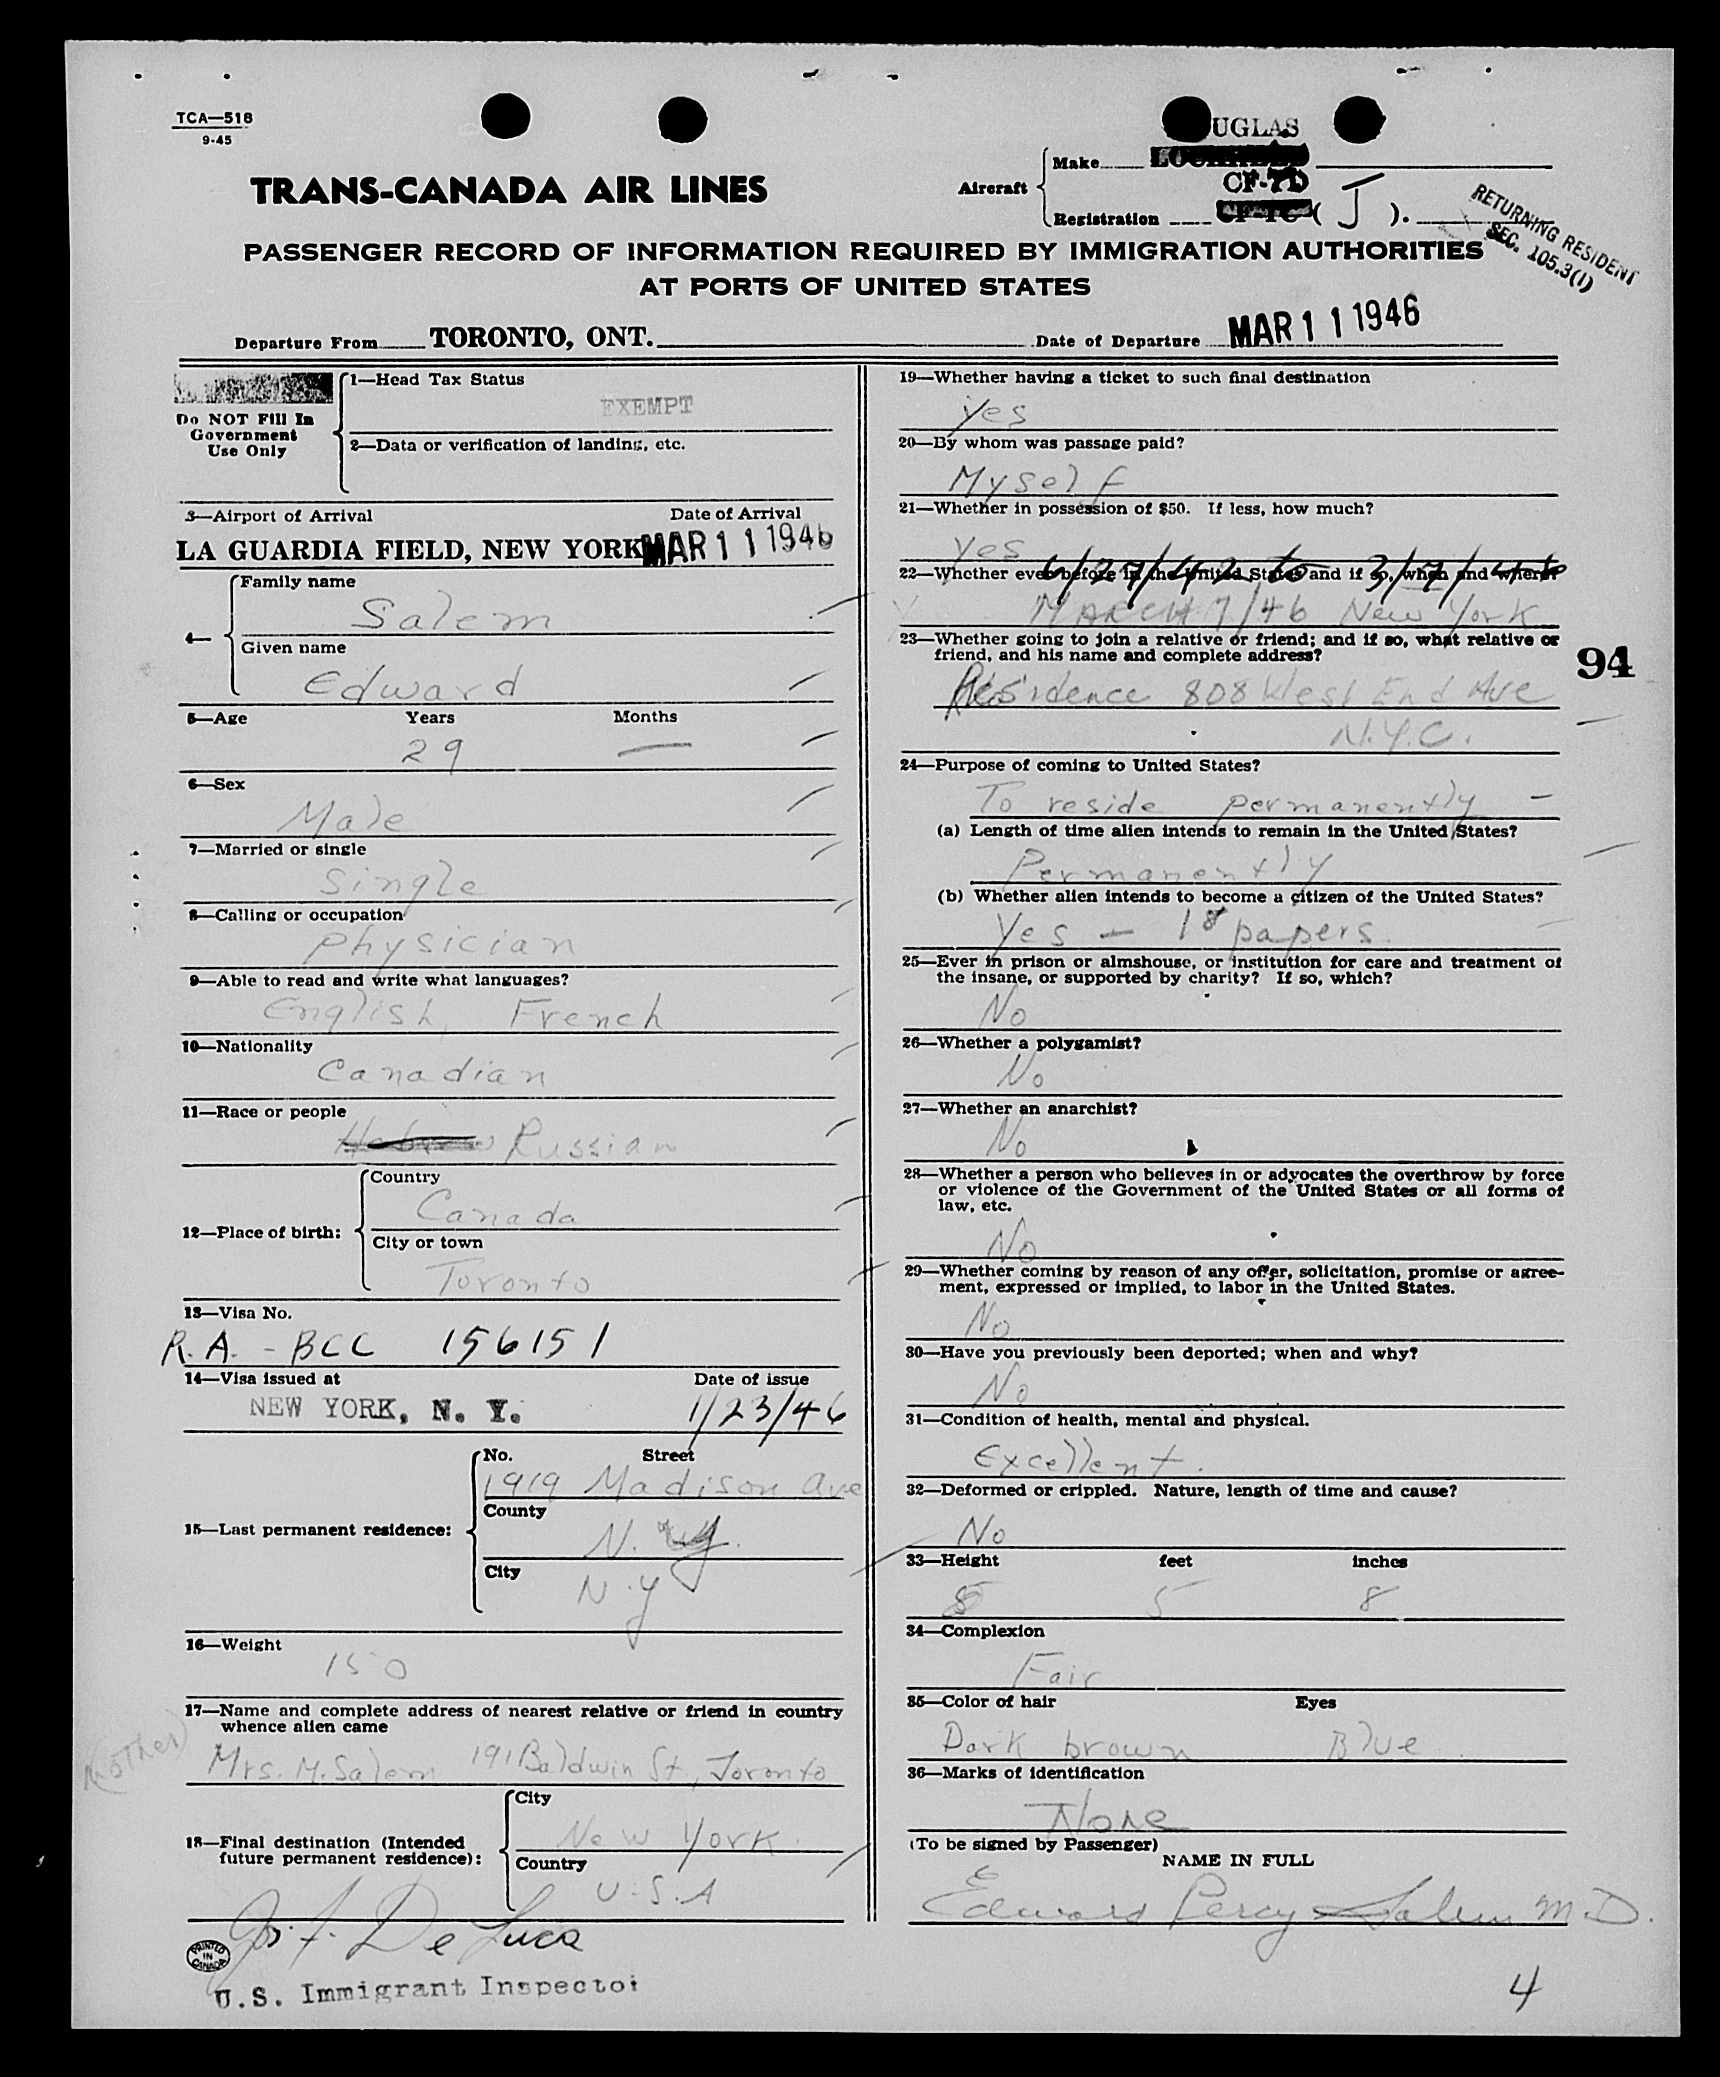 TCA—518
9-45
UGLAS
TRANS-CANADA AIR LINES
Aircraft
Make
CF-TD
Registration ( J ).
RETURNING RESIDENT
SEC. 105.3(1)
PASSENGER RECORD OF INFORMATION REQUIRED BY IMMIGRATION AUTHORITIES
AT PORTS OF UNITED STATES
Departure From TORONTO, ONT. Date of Departure MAR 11 1946
Do NOT Fill In
Government
Use Only
1—Head Tax Status
EXEMPT
2—Data or verification of landing, etc.
3—Airport of Arrival Date of Arrival
LA GUARDIA FIELD, NEW YORK MAR 11 1946
4—
Family name
Salem
Given name
Edward
5—Age Years Months
29 —
6—Sex
Male
7—Married or single
Single
8—Calling or occupation
Physician
9—Able to read and write what languages?
English, French
10—Nationality
Canadian
11—Race or people
Hebrew Russian
12—Place of birth:
Country
Canada
City or town
Toronto
13—Visa No.
R.A. - BCC 156151
14—Visa issued at Date of issue
NEW YORK, N. Y. 1/23/46
15—Last permanent residence:
No. Street
1919 Madison Ave
County
N. Y.
City
N.Y
16—Weight
150
17—Name and complete address of nearest relative or friend in country
whence alien came
(mother)
Mrs. M. Salem 191 Baldwin St., Toronto
18—Final destination (Intended
future permanent residence):
City
New York.
Country
U.S.A
Jos. F. De Luca
PRINTED
IN
CANADA
U.S. Immigrant Inspector
19—Whether having a ticket to such final destination
Yes
20—By whom was passage paid?
Myself
21—Whether in possession of $50. If less, how much?
Yes
22—Whether ever before in the United States and if so, when and where?
6/27/42 to 3/7/46
MARCH 7/46 New York
23—Whether going to join a relative or friend; and if so, what relative or
friend, and his name and complete address?
94
Residence 808 West End Ave
N.Y.C.
24—Purpose of coming to United States?
To reside permanently
(a) Length of time alien intends to remain in the United States?
Permanently
(b) Whether alien intends to become a citizen of the United States?
Yes — papers
25—Ever in prison or almshouse, or institution for care and treatment of
the insane, or supported by charity? If so, which?
No
26—Whether a polygamist?
No
27—Whether an anarchist?
No
28—Whether a person who believes in or advocates the overthrow by force
or violence of the Government of the United States or all forms of
law, etc.
No
29—Whether coming by reason of any offer, solicitation, promise or agree-
ment, expressed or implied, to labor in the United States.
No
30—Have you previously been deported; when and why?
No
31—Condition of health, mental and physical.
Excellent.
32—Deformed or crippled. Nature, length of time and cause?
No
33—Height feet inches
5 8
34—Complexion
Fair
35—Color of hair Eyes
Dark brown Blue
36—Marks of identification
None
(To be signed by Passenger)
NAME IN FULL
Edward Percy Salem M.D.
4